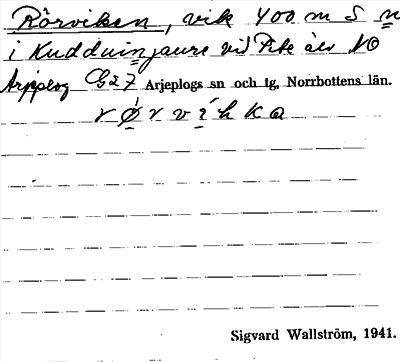 Rörviken, vik 400 m S n
i Kudduinjaure vid Pite älv NO
Arjeplog G27 Arjeplogs sn och tg, Norrbottens län.
rørvihka
Sigvard Wallström, 1941.